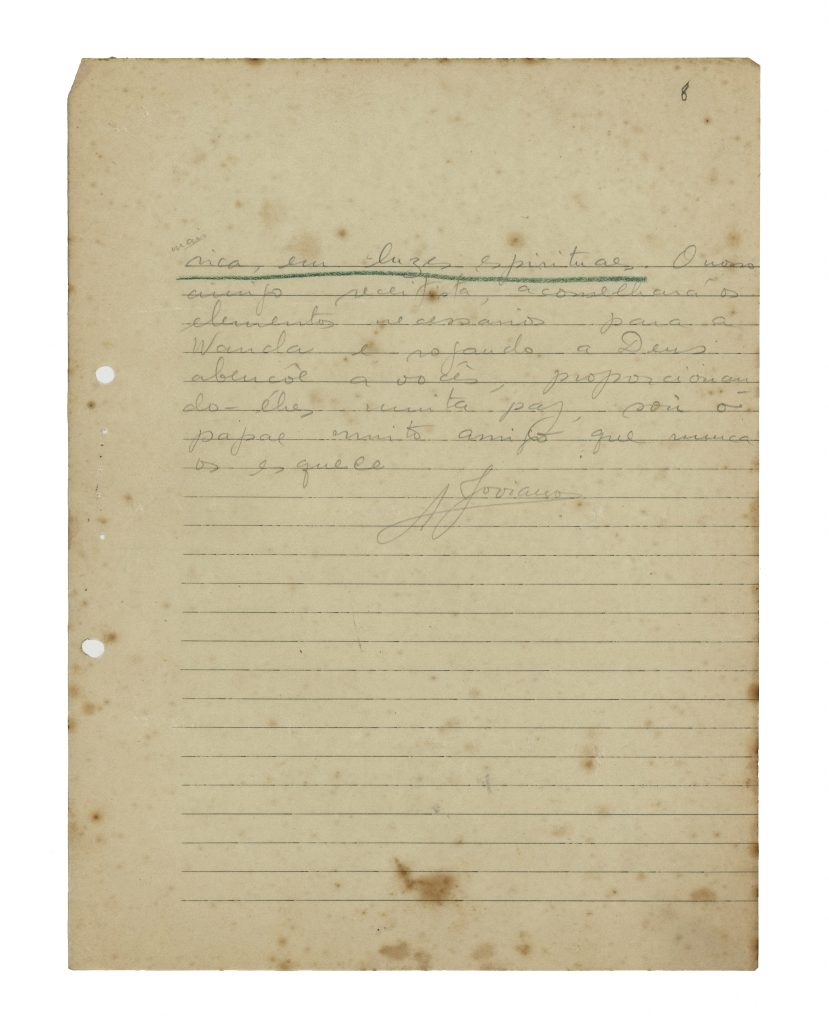 8
mais
rica, em luzes espirituaes. O nosso
amigo receitista, aconselhará os
elementos necessarios para a
Wanda e rogando a Deus
abençôe a vocês, proporcionan
do-lhes muita paz, sou o
papae muito amigo que nunca
os esquece
A Joviano